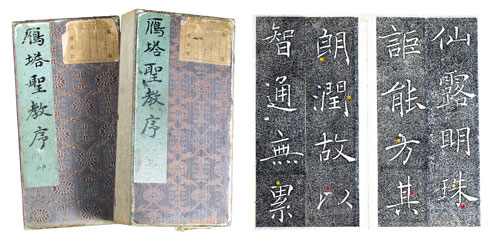 鴈塔聖教序
鴈塔聖教序
仙露明珠
詎能方其
朗潤故以
智通無累